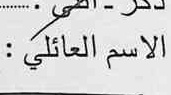 ذكر - أنثى : ........
الاسم العائلي :